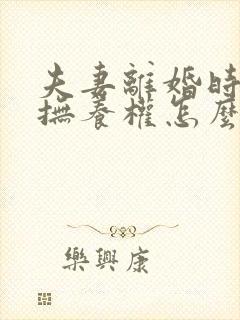 夫妻離婚時
撫養權怎麼
樂興康